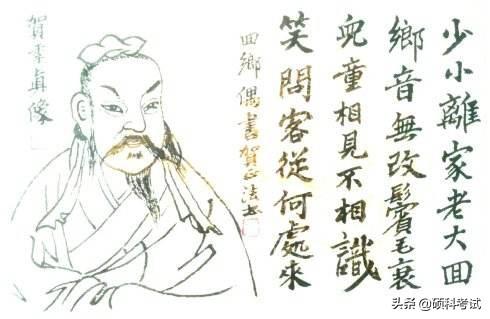 少小離家老大回
鄉音無改鬢毛衰
兒童相見不相識
笑問客從何處來
回鄉偶書賀正法書
賀季真像
头条 @硕科考试